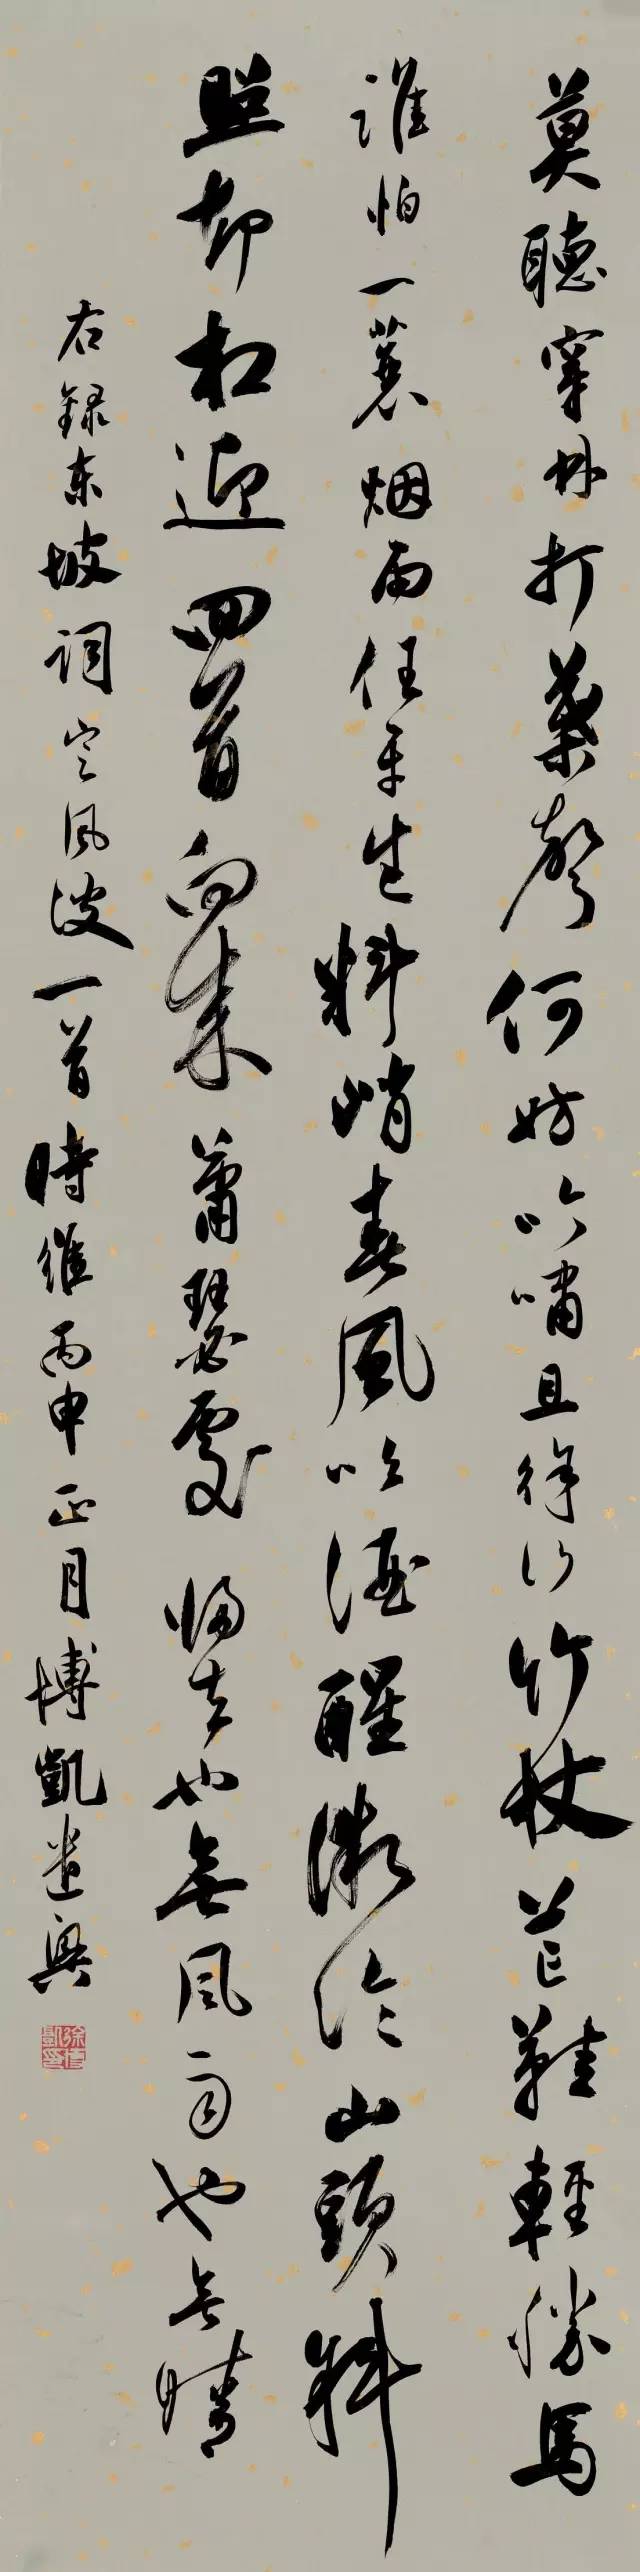 莫聽穿林打葉聲何妨吟嘯且徐行竹杖芒鞋輕勝馬
誰怕一蓑烟雨任平生料峭春風吹酒醒微冷山頭斜
照却相迎回首向來蕭瑟處歸去也無風雨也無晴
右録东坡詞定風波一首時維丙申正月博凱遣興